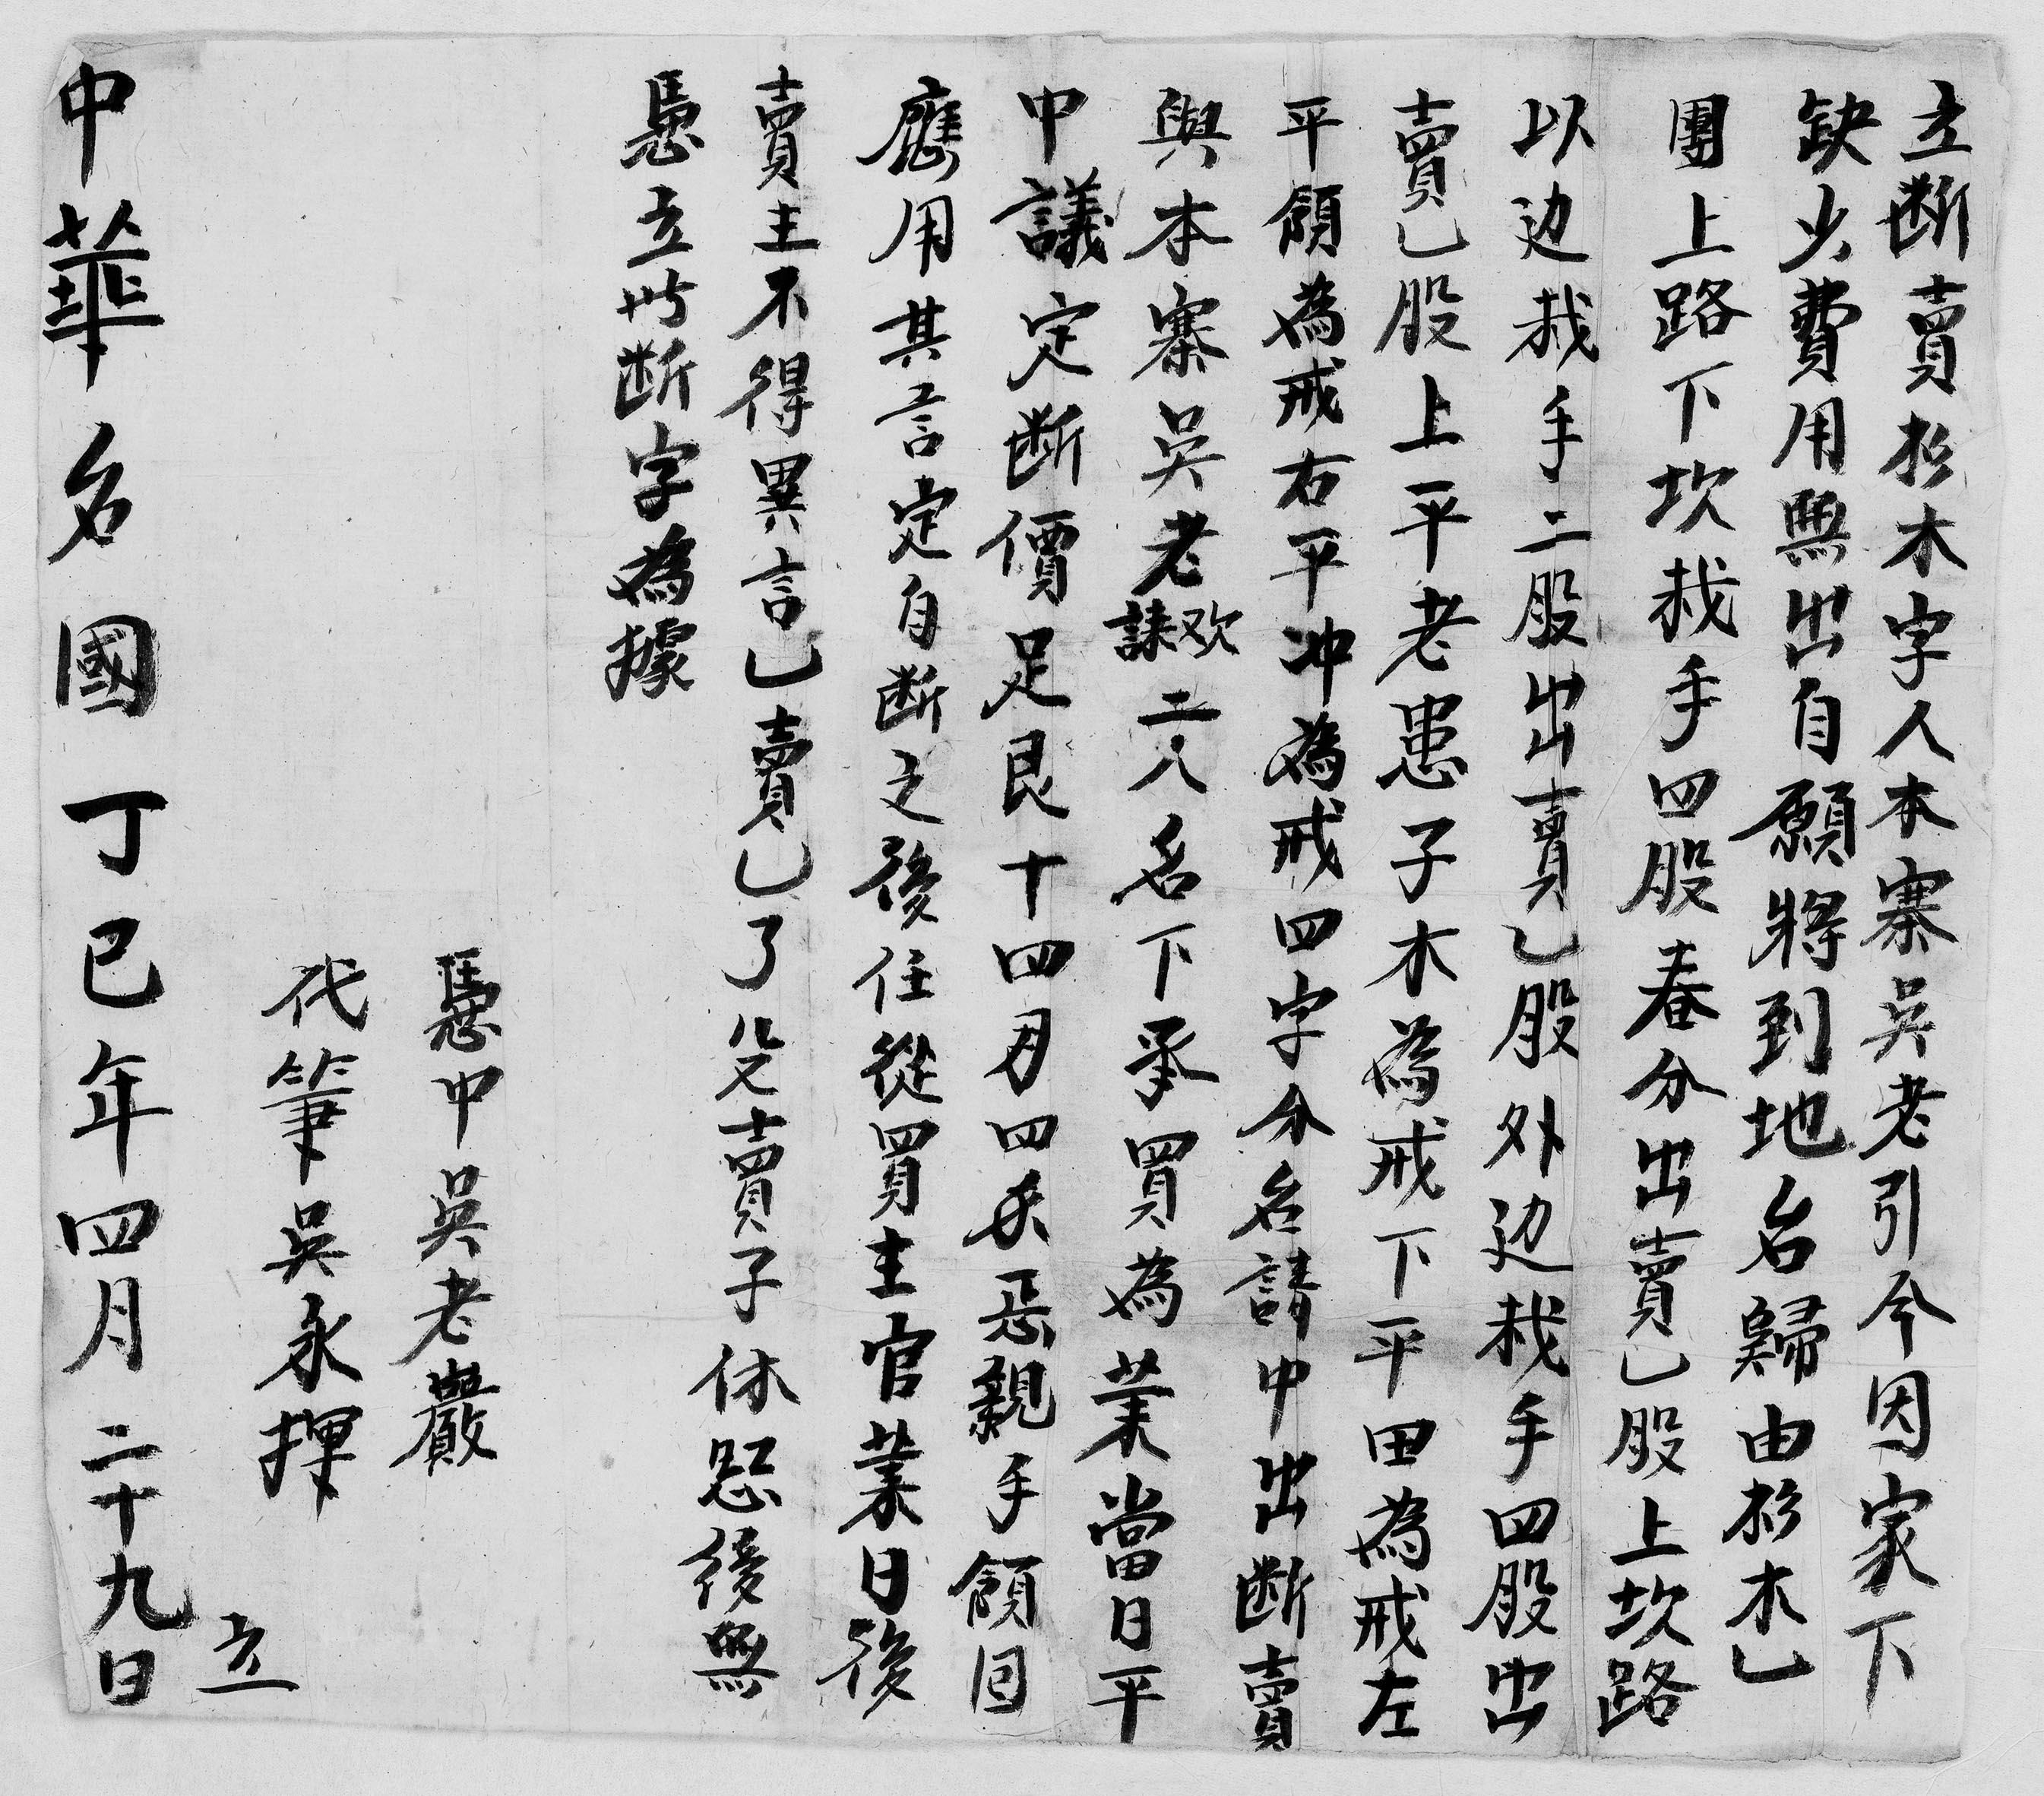 立断賣杉木字人本寨吳老引今因家下
缺少費用無出自願將到地名歸由杉木乙
團上路下坎栽手四股春分出賣乙股上坎路
以边栽手二股出賣乙股外边栽手四股出
賣乙股上平老患子木為戒下平田為戒左
平領為戒右平冲為戒四字分名請中出断賣
與本寨吳老欢誄二人名下承買為業當日平
中議定断價足艮十四刄四夭忢親手領囬
應用其言定自断之後任從買主官業日後
賣主不得異言乙賣乙了父賣子休恐後無
憑立此断字為據
憑中吳老嚴
代筆吳永揮
立
中華名國丁巳年四月二十九日